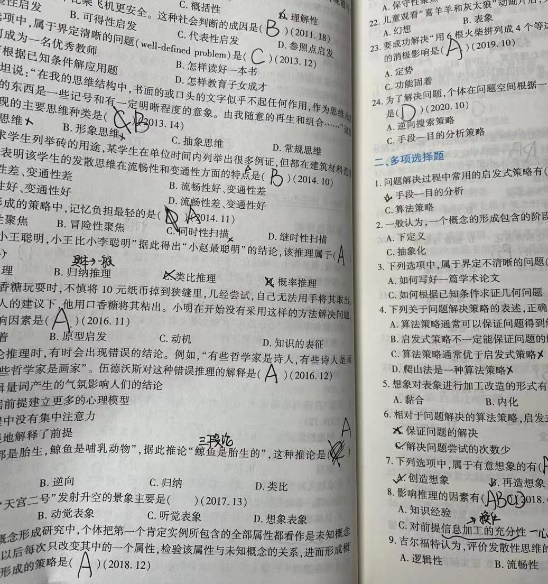 C. 概括性
A. 理解性
比乘飞机更安全。这种社会判断的成因是( B )(2011.18)
性启发 B. 可得性启发 C. 代表性启发 D. 参照点启发
项中,属于界定清晰的问题(well-defined problem)是( C )(2013.12)
成为一名优秀教师 B. 怎样读好一本书
根据已知条件解应用题 D. 怎样教育子女成才
坦说,“在我的思维结构中,书面的或口头的文字似乎不起任何作用,作为思维
的东西是一些记号和有一定明晰程度的意象。由我随意的再生和组合……”
现的主要思维种类是( B )(2013.14)
思维 B. 形象思维 C. 抽象思维 D. 常规思维
求学生列举砖的用途,某学生在单位时间内列举出很多例证,但都在建筑材料
表明该学生的发散思维在流畅性和变通性方面的特点是( B )(2014.10)
性差、变通性差 B. 流畅性好、变通性差
性好、变通性好 D. 流畅性差、变通性好
成的策略中,记忆负担最轻的是( A )(2014.11)
性聚焦 B. 冒险性聚焦 C. 同时性扫描 D. 继时性扫描
小王聪明,小王比小李聪明”据此得出“小赵最聪明”的结论,该推理属于( A
理 B. 归纳推理 C. 类比推理 D. 概率推理
香糖玩耍时,不慎将 10 元纸币掉到狭缝里,几经尝试,自己无法用手将其取出
人的建议下,他用口香糖将其粘出。小明在开始没有采用这样的方法解决问题
响因素是( A )(2016.11)
B. 原型启发 C. 动机 D. 知识的表征
推理时,有时会出现错误的结论。例如,“有些哲学家是诗人,有些诗人是
些哲学家是画家”。伍德沃斯对这种错误推理的解释是( A )(2016.12)
量词产生的气氛影响人们的结论
前提建立更多的心理模型
中没有集中注意力
地解释了前提
三段论
A
都是胎生,鲸鱼是哺乳动物”,据此推论“鲸鱼是胎生的”,这种推论是(
B. 逆向 C. 归纳 D. 类比
“天宫二号”发射升空的景象主要是( )(2017.13)
B. 动觉表象 C. 听觉表象 D. 想象表象
概念形成研究中,个体把第一个肯定实例所包含的全部属性都看作是未知概念
以后每次只改变其中的一个属性,检验该属性与未知概念的关系,进而形成概
形成的策略是( A )(2018.12)
A. 保守性聚
22. 儿童观看“喜羊羊和灰太狼”动画片
A. 幻想 B. 表象
23. 要成功解决“用 6 根火柴拼列成 4 个等
的消极影响是( A )(2019.10)
A. 定势
C. 功能固着
24. 为了解决问题,个体在问题空间根据一
是( D )(2020.10)
A. 逆向搜索策略
C. 手段—目的分析策略
二、多项选择题
1. 问题解决过程中常用的启发式策略有(
A. 手段—目的分析
C. 算法策略
2. 一般认为,一个概念的形成包含的阶段
A. 下定义
C. 抽象化
3. 下列选项中,属于界定不清晰的问题(
A. 如何写好一篇学术论文
C. 如何根据已知条件求证几何问题
4. 下列关于问题解决策略的表述,正确
A. 算法策略通常可以保证问题得到
B. 启发式策略不一定能保证问题的
C. 算法策略通常优于启发式策略
D. 爬山法是一种算法策略
5. 想象对表象进行加工改造的形式有
A. 黏合 B. 内化
6. 相对于问题解决的算法策略,启发式
A. 保证问题的解决
C. 解决问题尝试的次数少
7. 下列选项中,属于有意想象的有(
A. 创造想象 B. 再造想象
8. 影响推理的因素有( ABCD )(2018.
A. 知识经验
C. 对前提信息加工的充分性
9. 吉尔福特认为,评价发散性思维的
A. 逻辑性 B. 流畅性